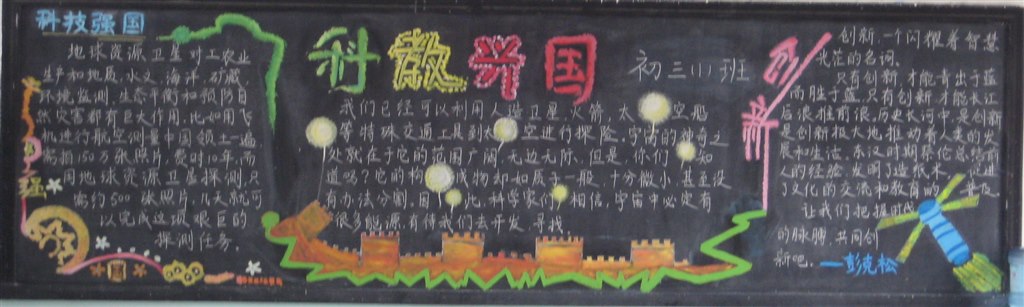 科技强国
地球资源卫星对工农业
生产和地质、水文、海洋、矿藏
环境监测、生态平衡和预防自
然灾害都有巨大作用,比如用飞
机进行航空测量中国领土一遍
需拍150万张照片,费时10年,而
用地球资源卫星探测,只
需约500张照片,几天就可
以完成这项艰巨的
探测任务。
科教兴国
初三(1)班
我们已经可以利用人造卫星、火箭、太空船
等特殊交通工具到太空进行探险,宇宙的神奇之
处就在于它的范围广阔、无边无际、但是,你们知
道吗?它的构成物却如质子一般,十分微小,甚至没
有办法分割,因此,科学家们相信,宇宙中必定有
很多能源,有待我们去开发、寻找。
创新
创新,一个闪耀着智慧
光茫的名词。
只有创新,才能青出于蓝
而胜于蓝,只有创新,才能长江
后浪推前浪,历史长河中,是创新
是创新极大地推动着人类的发
展和生活。东汉时期蔡伦总结前
人的经验,发明了造纸术,促进
了文化的交流和教育的普及
让我们把握时代
的脉膊,共同创
新吧。—彭克松